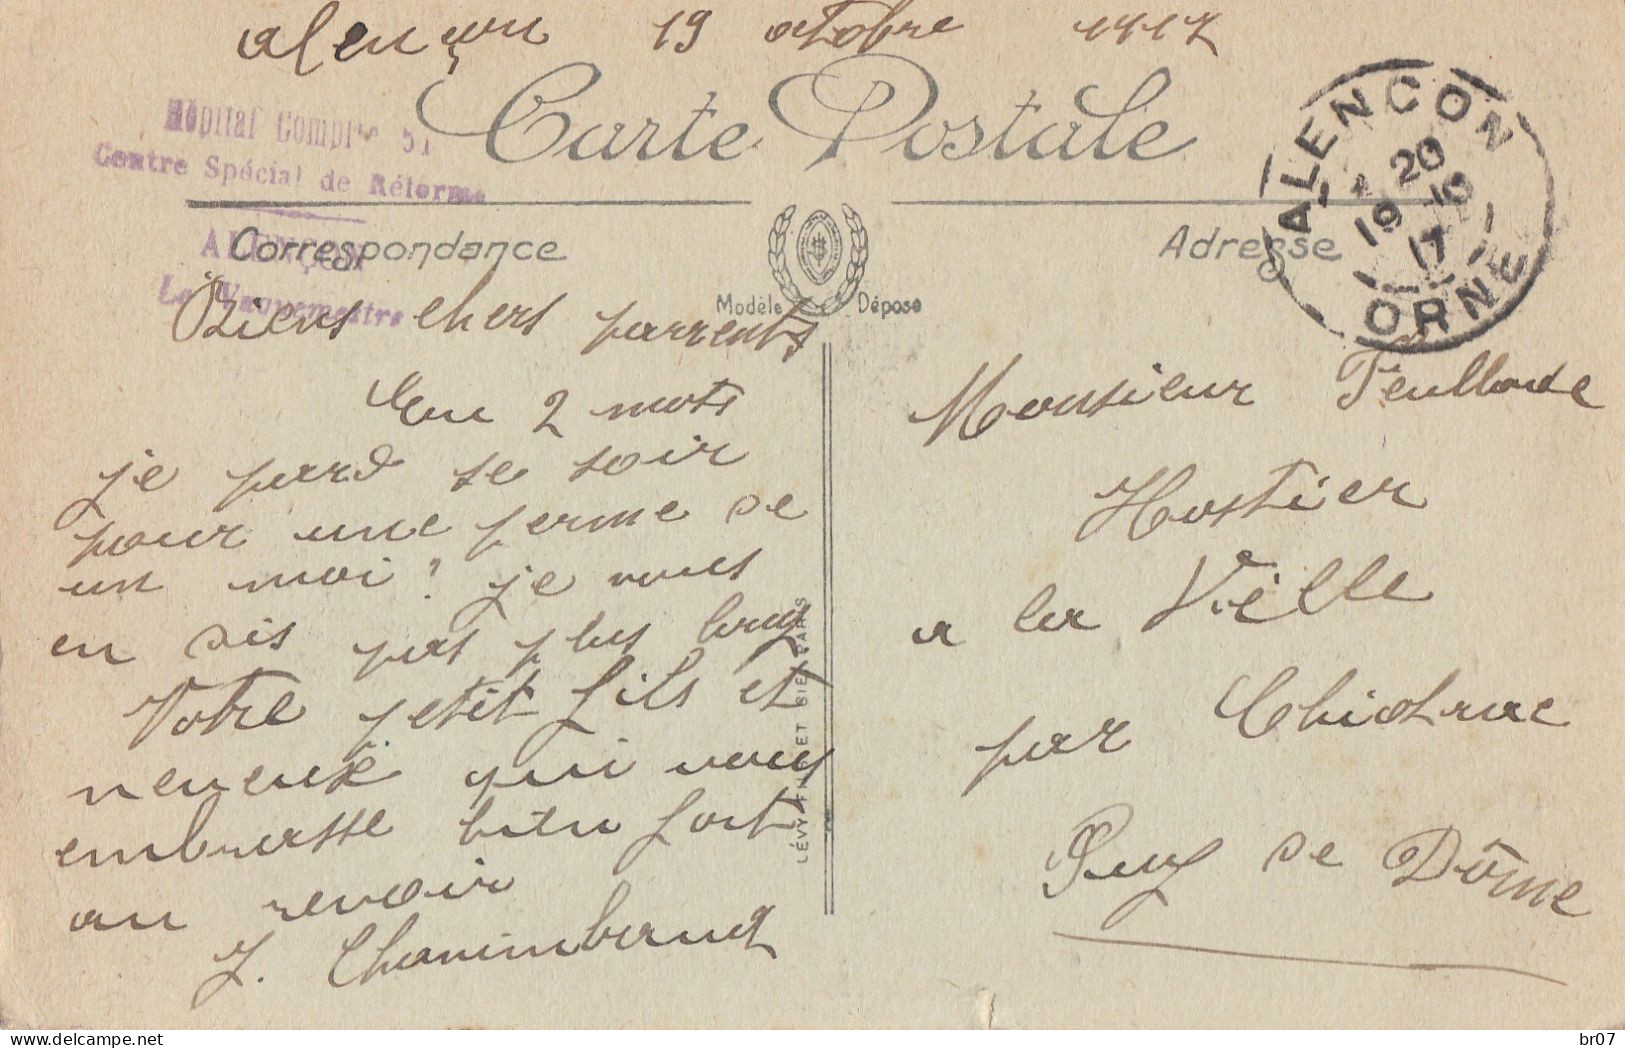 alençon 19 octobre 1917
Carte Postale
Hôpital Compre 51
Centre Spécial de Réforme
ALENÇON
Le Vaguemestre
ALENCON
20
19 - 10
17
ORNE
Correspondance
Adresse
Modèle Déposé
Biens chers parrents
En 2 mots
je pard se soir
pour une ferme de
un moi! je vous
en dis pas plus long
Votre petit fils et
neveux qui vous
embrasse bien fort
au revoir
J. Chanimbaud
LÉVY FILS ET CIE PARIS
Monsieur Feullarde
Hostier
a la Vielle
par Chidrac
Puy de Dôme
delcampe.net
br07